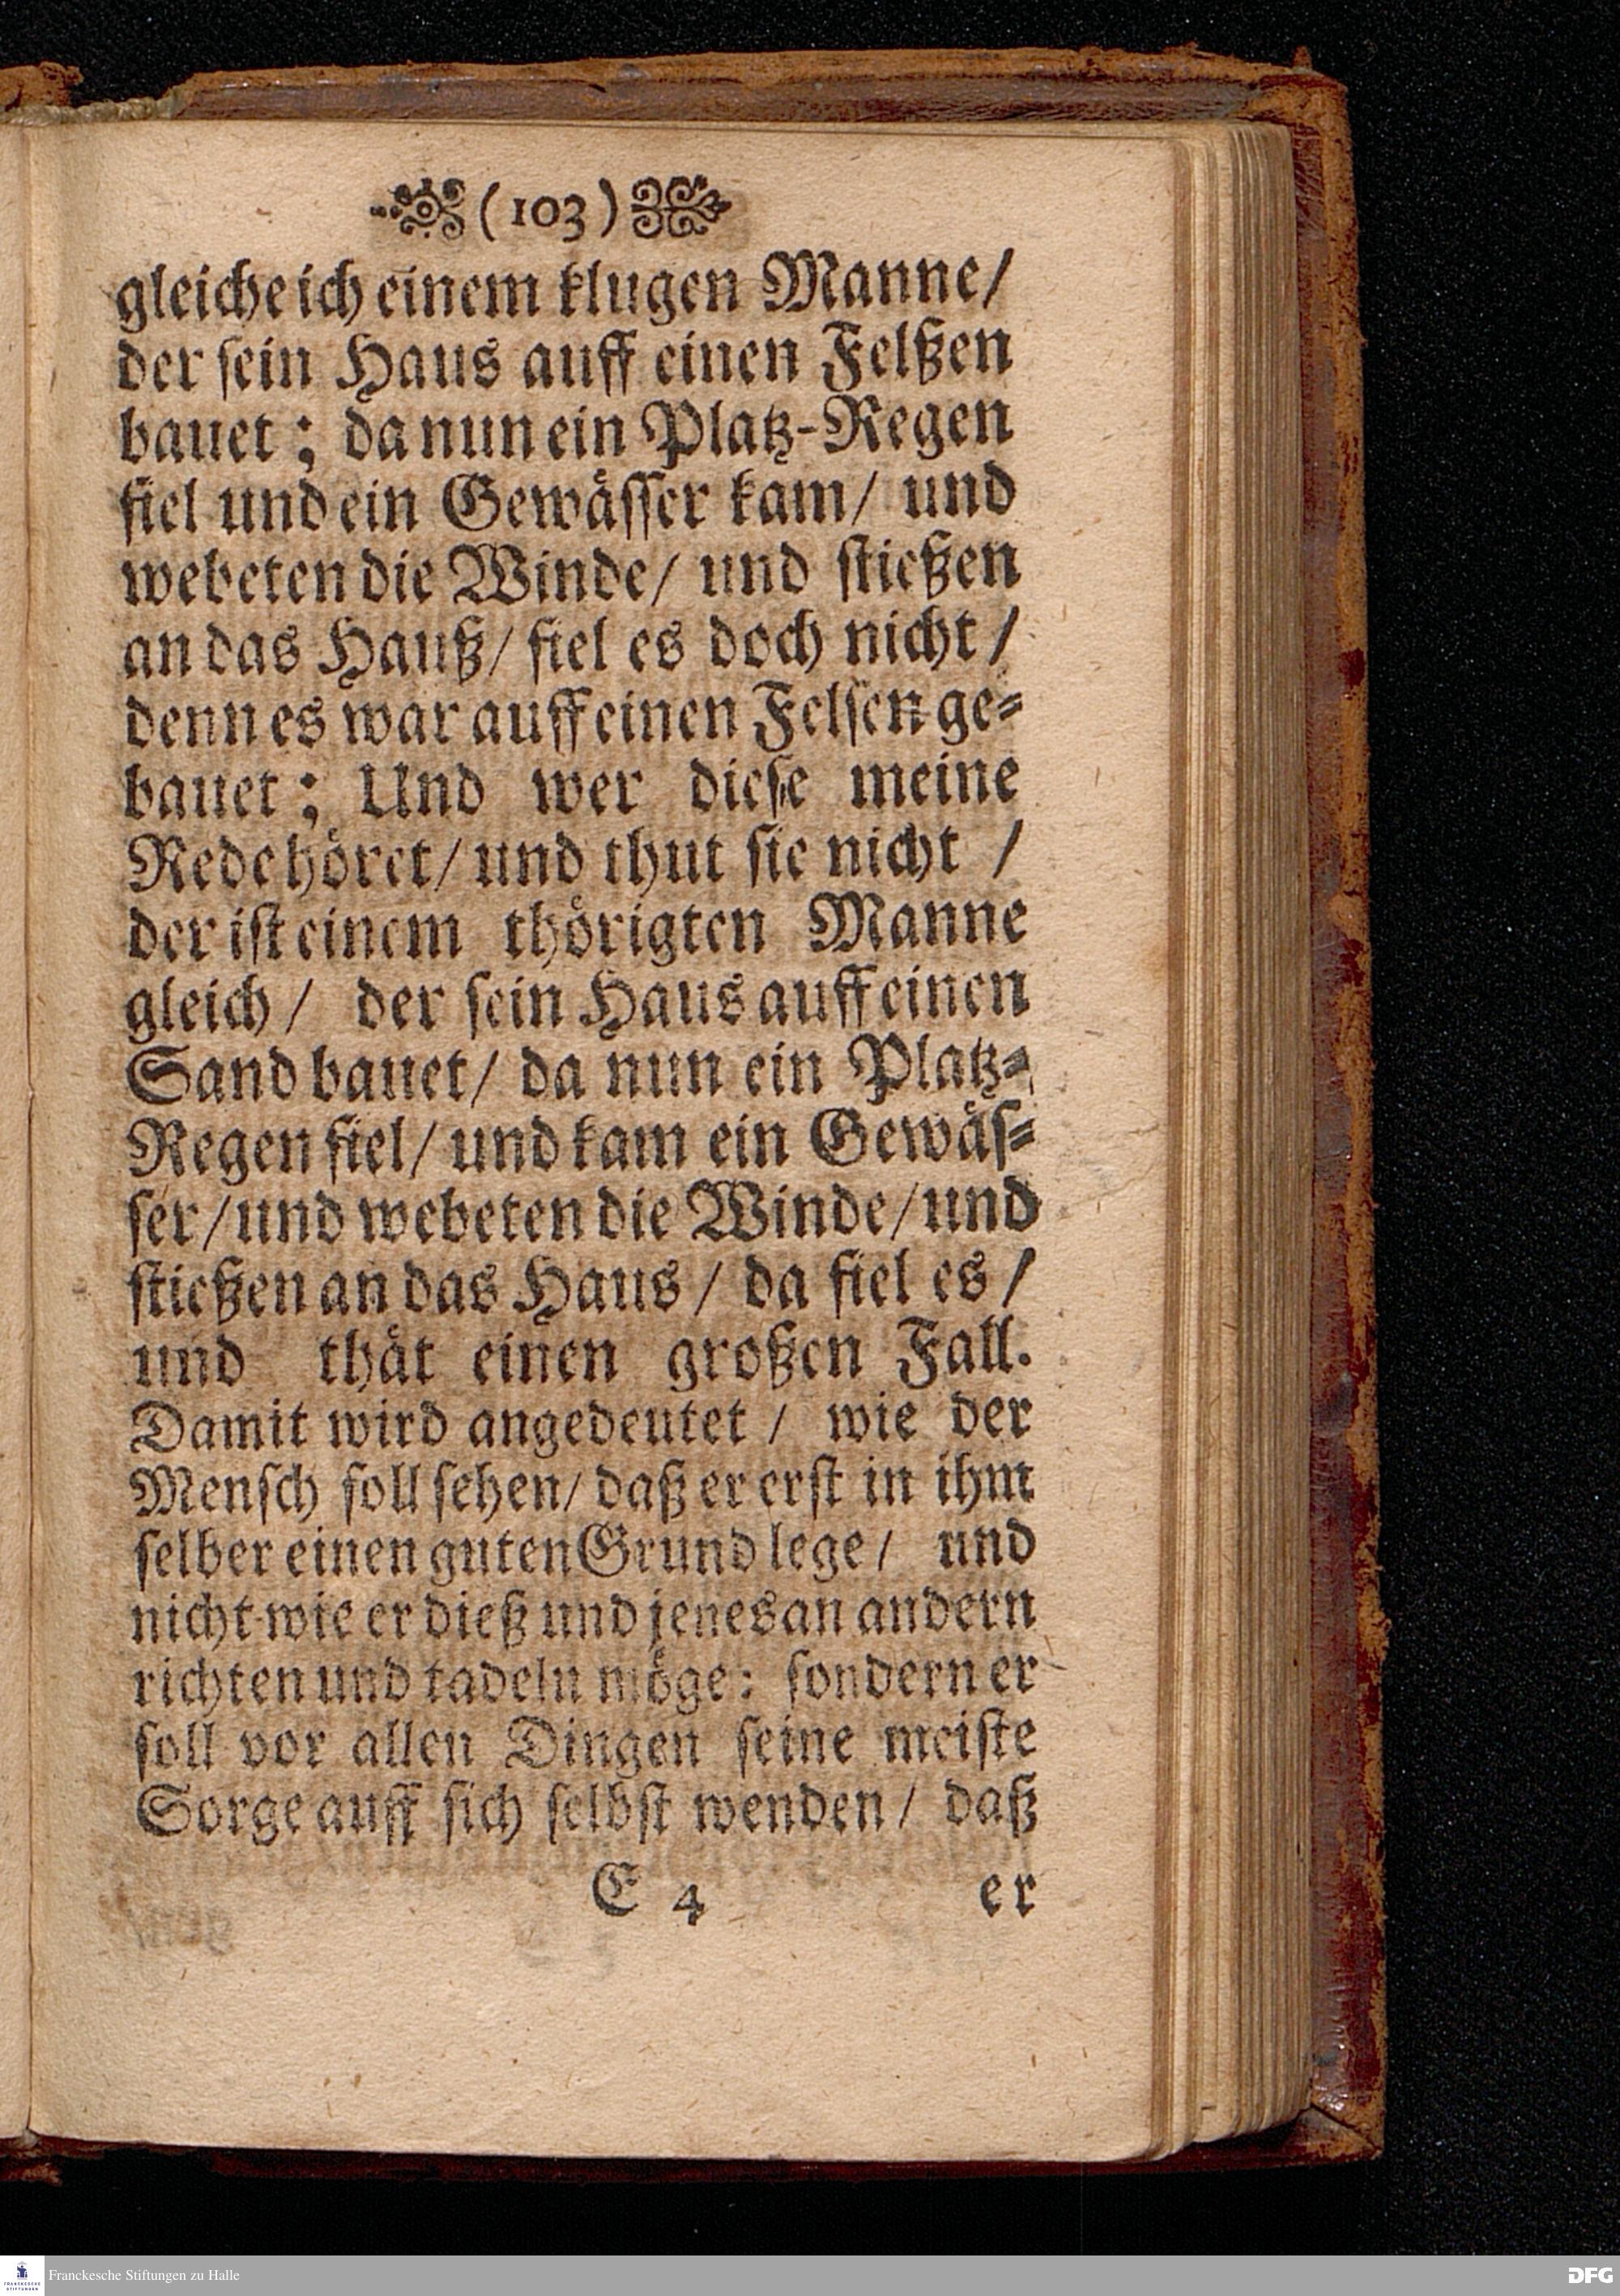 (103)
gleiche ich einem klugen Manne/
der sein Haus auff einen Felßen
bauet; da nun ein Platz-Regen
fiel und ein Gewässer kam/ und
webeten die Winde/ und stießen
an das Hauß/ fiel es doch nicht/
denn es war auff einen Felsen ge-
bauet; Und wer diese meine
Rede höret/ und thut sie nicht /
der ist einem thörigten Manne
gleich/ der sein Haus auff einen
Sand bauet/ da nun ein Platz-
Regen fiel/ und kam ein Gewäs-
ser/und webeten die Winde/und
stießen an das Haus/ da fiel es/
und thät einen großen Fall.
Damit wird angedeutet/ wie der
Mensch soll sehen/ daß er erst in ihm
selber einen guten Grund lege/ und
nicht wie er dieß und jenes an andern
richten und tadeln möge: sondern er
soll vor allen Dingen seine meiste
Sorge auff sich selbst wenden/ daß
E 4 er
Franckesche Stiftungen zu Halle
FRANCKESCHE STIFTUNGEN
DFG